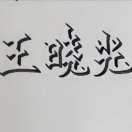 王晓光